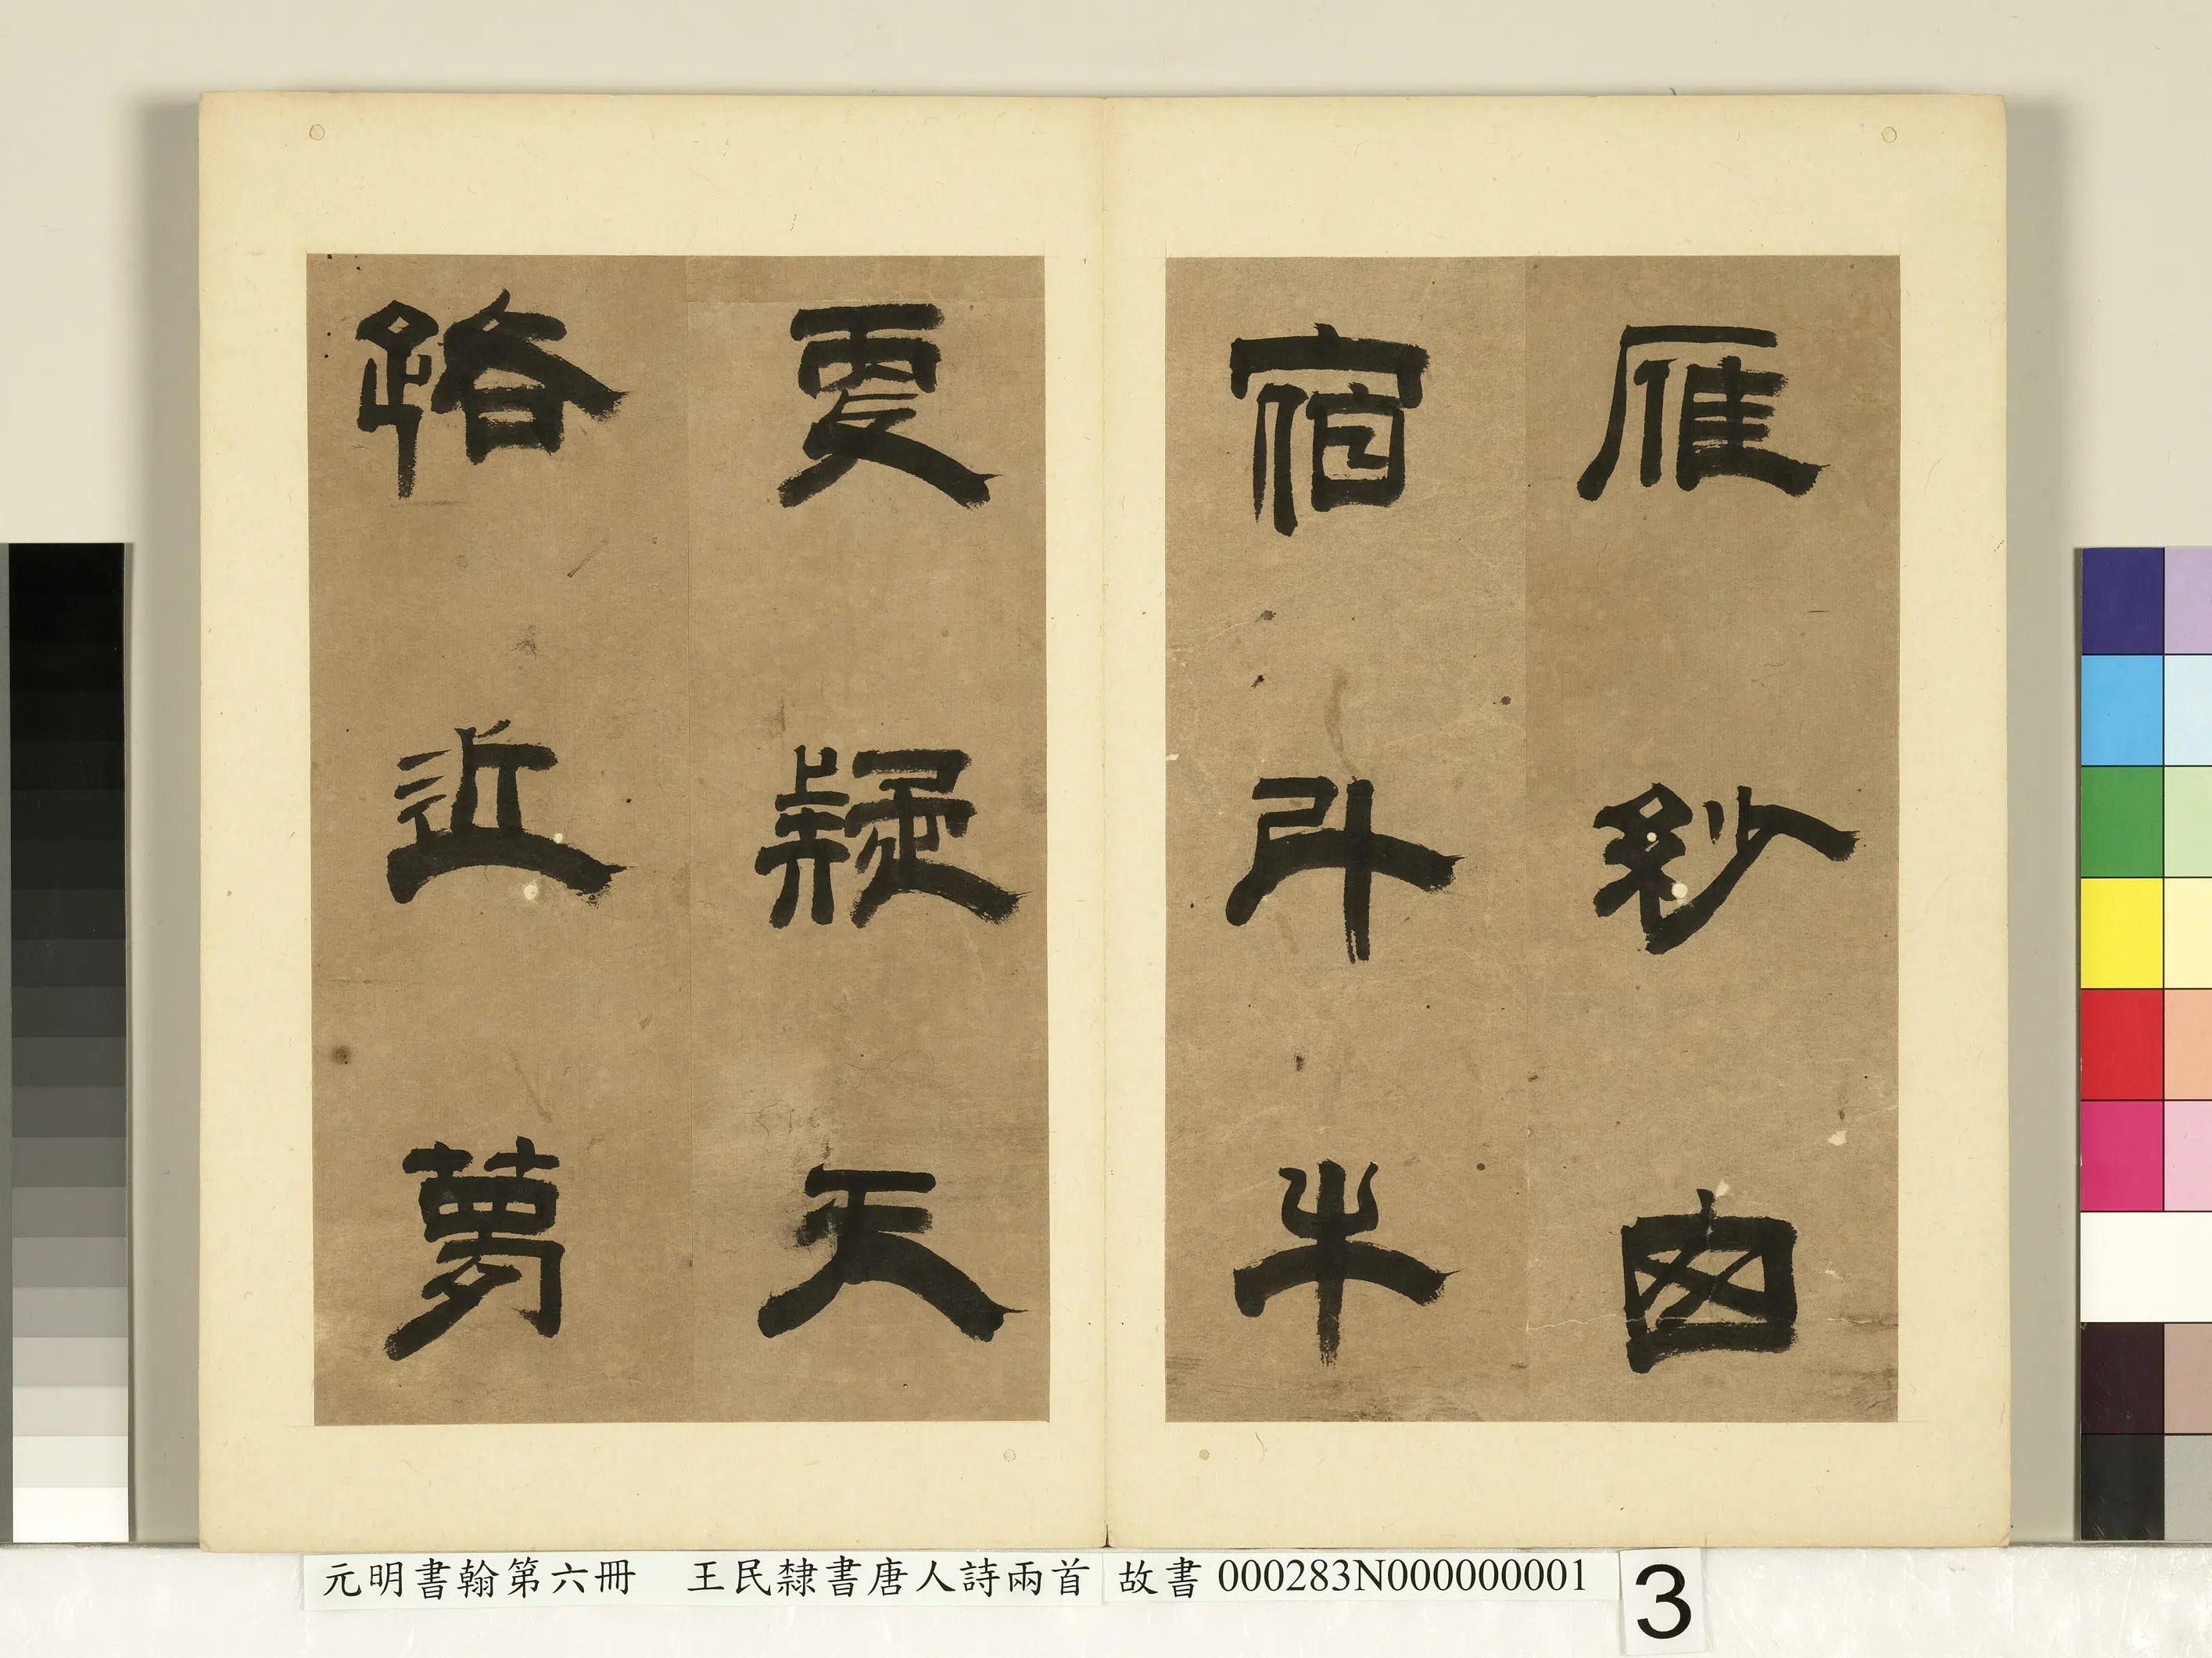 雁紗囪
宿斗牛
更疑天
路近夢
元明書翰第六冊　王民隸書唐人詩兩首 故書 000283N000000001 3